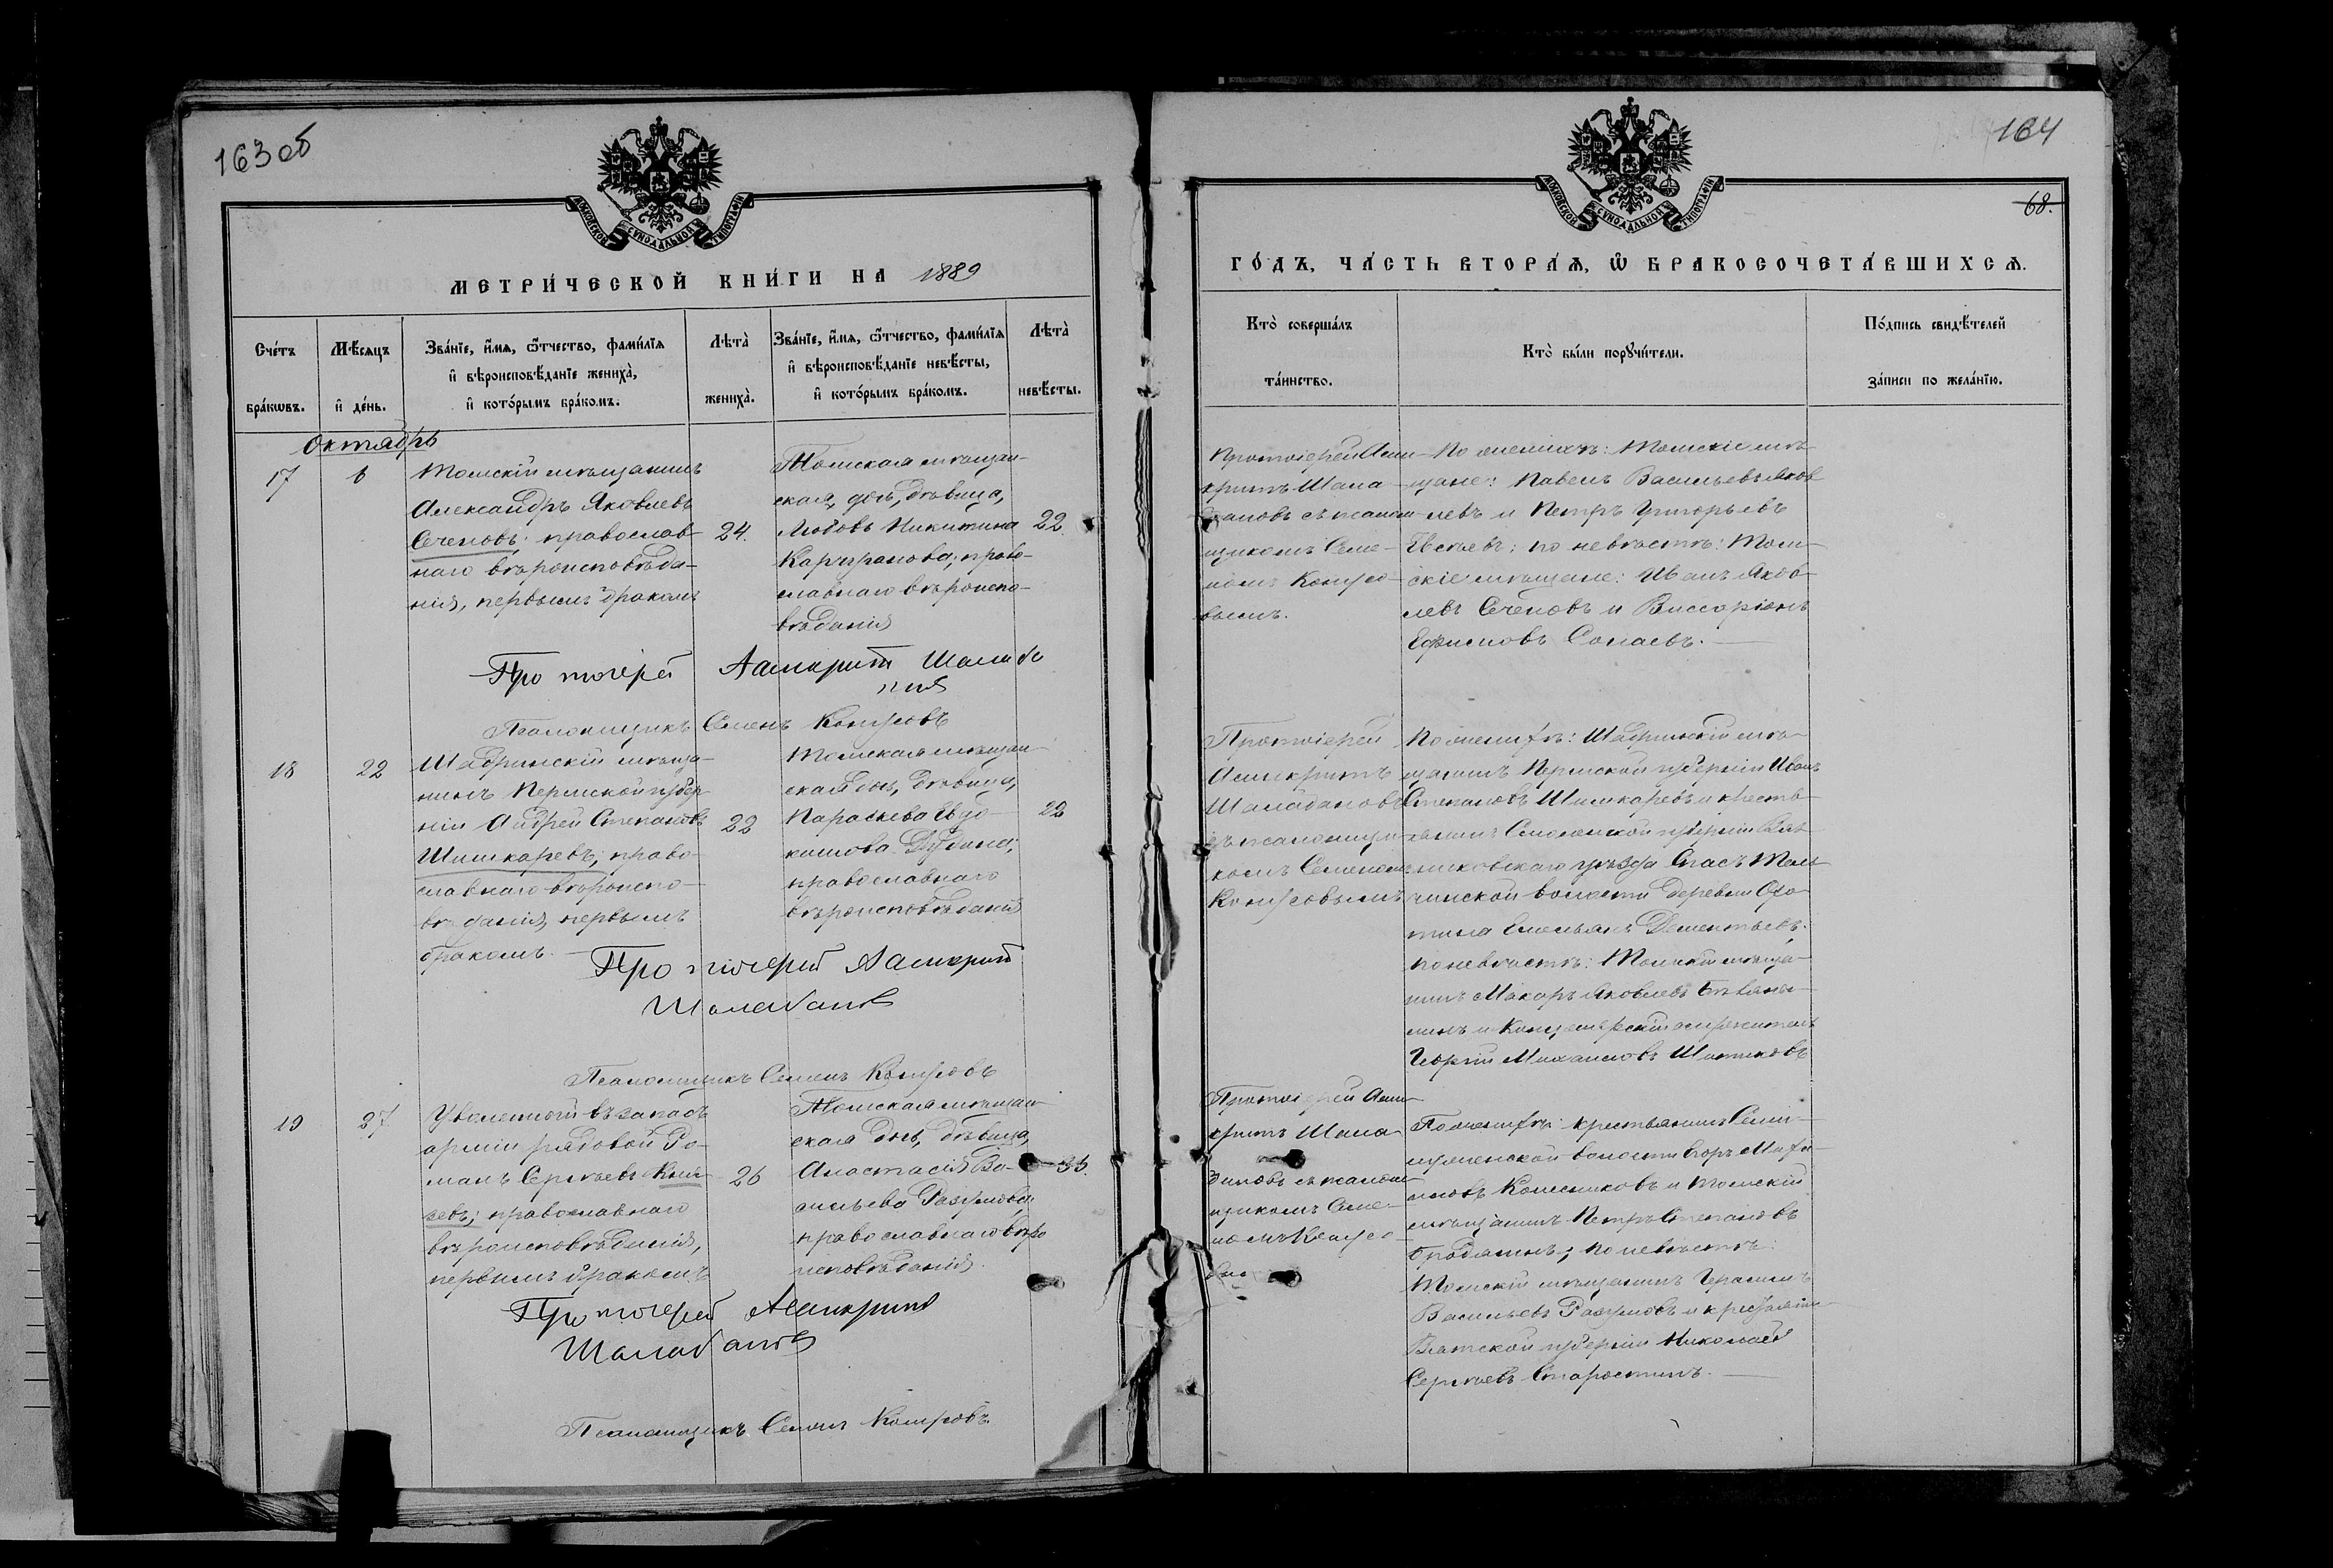 163 об
МОСКОВСКОЙ СѴНОДАЛЬНОЙ ТИПОГРАФІИ
МЕТРИ́ЧЕСКОЙ КНИ́ГИ НА 1889
Сче́тъ бра́кωвъ.
Мѣ́сяцъ и҆ де́нь.
Зва́нїе, и҆́мѧ, ѻ҆́тчество, фами́лїѧ
и҆ вѣроисповѣ́данїе жениха̀,
и҆ кото́рымъ бра́комъ.
Лѣта̀ жениха̀.
Зва́нїе, и҆́мѧ, ѻ҆́тчество, фами́лїѧ
и҆ вѣроисповѣ́данїе невѣ́сты,
и҆ кото́рымъ бра́комъ.
Лѣта̀ невѣ́сты.
Октябрь
17
6
Томскій мѣщанинъ
Александръ Яковлевъ
Сеченовъ: православ-
наго вѣроисповѣда-
нія, первымъ бракомъ
24.
Томская мѣщан-
ская дочь, дѣвица,
Любовь Никитина
право-
славнаго вѣроиспо-
вѣданія
22
Протоіерей Асинкритъ Шалаба
новъ
Псаломщикъ Семенъ
18
22
Шадринскій мѣща-
нинъ Пермской губер-
ніи Андрей Степановъ
Шишкаревъ; право-
славнаго вѣроиспо-
вѣданія, первымъ
бракомъ.
22
Томская мѣщан-
ская дочь, дѣвица,
Параскева Евдо-
кимова
православнаго
вѣроисповѣданія
22
Протоіерей Асинкритъ
Шалабановъ
Псаломщикъ Семенъ
19
27
Уволенный въ запасъ
арміи рядовой Ро-
манъ Сергѣевъ Кня-
зевъ; православнаго
вѣроисповѣданія,
первымъ бракомъ
26
Томская мѣщан-
ская дочь, дѣвица,
Анастасія Ва-
сильева Разумова;
православнаго вѣро
исповѣданія.
Протоіерей Асинкритъ
Шалабановъ
Псаломщикъ Семенъ
164
68.
МОСКОВСКОЙ СѴНОДАЛЬНОЙ ТИПОГРАФІИ
ГО́ДЪ, ЧА́СТЬ ВТОРА́Ѧ, Ѽ БРАКОСОЧЕТА́ВШИХСѦ.
Кто̀ соверша́лъ та́инство.
Кто̀ бы́ли порꙋчи́тели.
По́дпись свидѣ́телей за́писи по жела́нїю.
Протоіерей Асин-
критъ Шала-
бановъ съ псалом-
щикомъ Семе-
номъ
вымъ.
По женихѣ: Томскіе мѣ-
щане: Павелъ Васильевъ Яков
левъ и Петръ Григорьевъ
по невѣстѣ: Том-
скіе мѣщане: Иванъ Яков-
левъ Сеченовъ и Виссаріонъ
Ефимовъ
Протоіерей
Асинкритъ
Шалабановъ
съ псаломщи-
комъ Семеномъ
По женихѣ: Шадринскій мѣ-
щанинъ Пермской губерніи Иванъ
Степановъ Шишкаревъ и кресть-
янинъ губерніи
уѣзда
волости деревни
Емельянъ Дементьевъ:
по невѣстѣ: Томскій мѣща-
нинъ Макаръ Яковлевъ
и Канцелярскій служитель
Георгій Михаиловъ
Протоіерей Асин-
критъ Шала-
бановъ съ псалом-
щикомъ Семе-
номъ
По женихѣ: крестьянинъ
волости Егоръ
Колесниковъ и Томскій
мѣщанинъ Петръ Степановъ
по невѣстѣ:
Томскій мѣщанинъ Герасимъ
Васильевъ Разумовъ и крестьянинъ
Вятской губерніи Николай
Сергѣевъ Старостинъ.